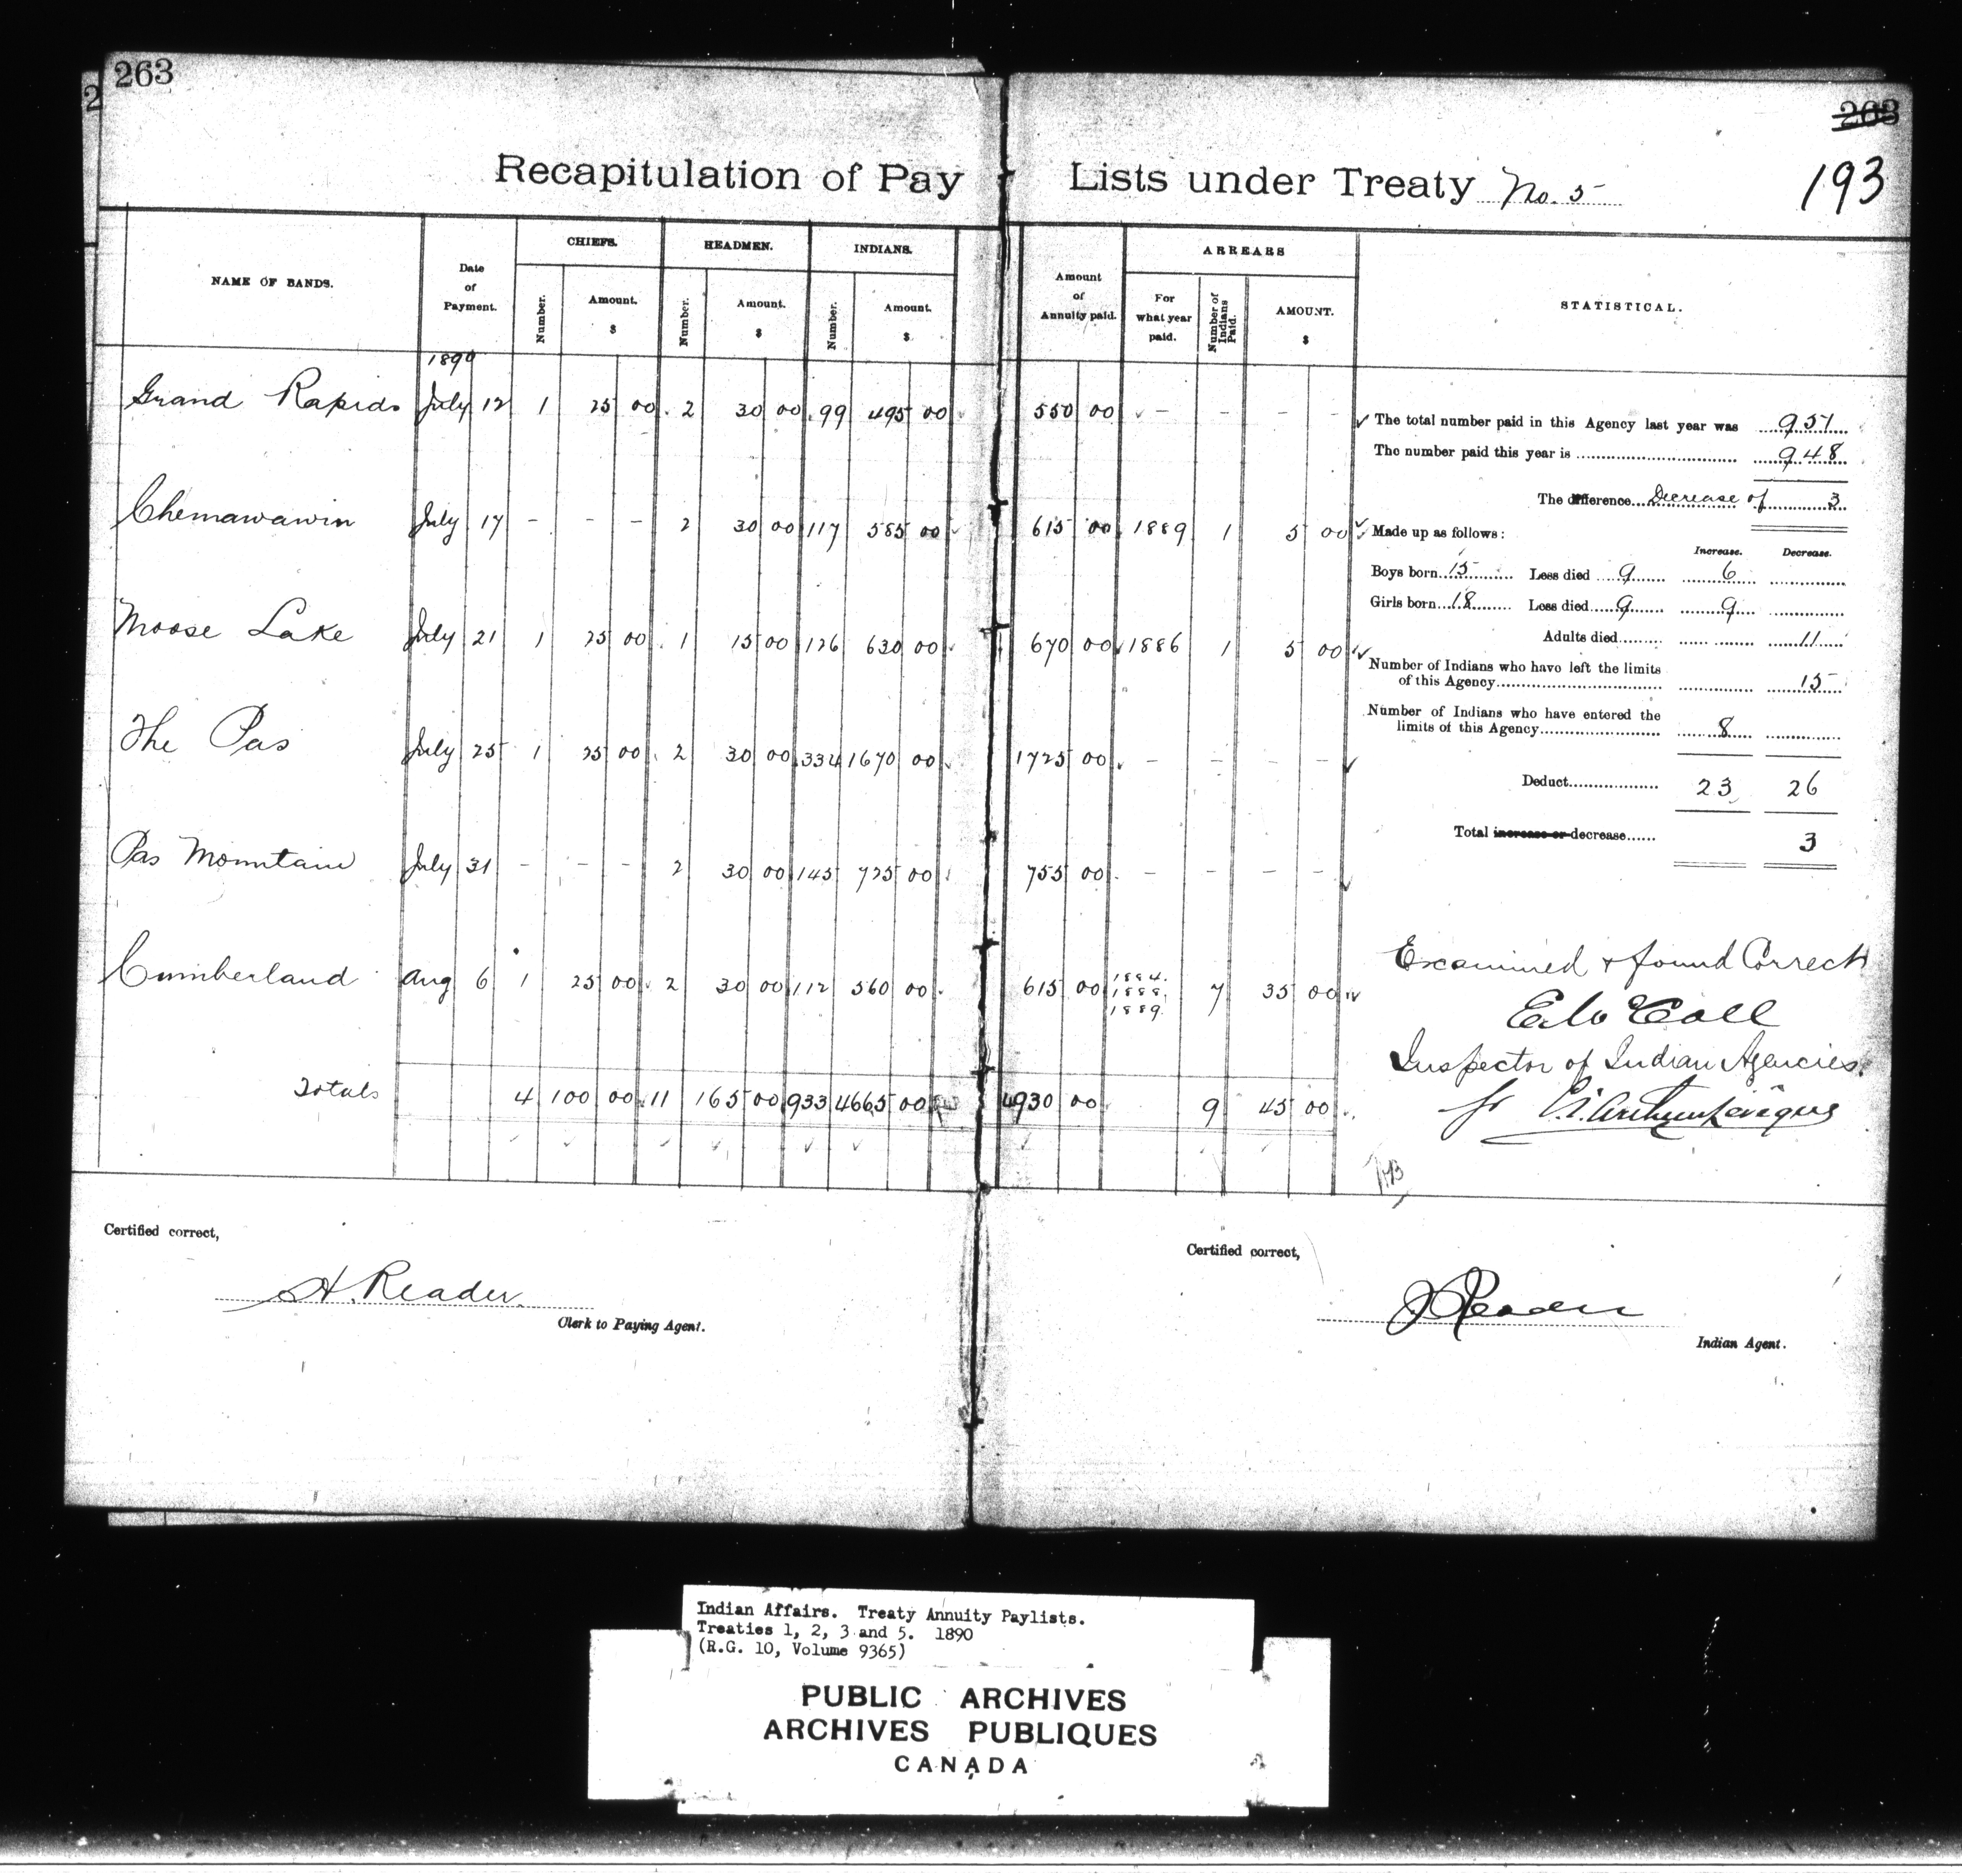 263
263
193
Recapitulation of Pay Lists under Treaty No. 5
NAME OF BANDS. Date of Payment. CHIEFS. HEADMEN. INDIANS. Amount of Annuity paid. ARREARS STATISTICAL.
Number. Amount. $ Number. Amount. $ Number. Amount. $ For what year paid. Number of Indians Paid. AMOUNT. $
1890
Grand Rapids July 12 1 25 00 2 30 00 99 495 00 550 00 - - - -
Chemawawin July 17 - - - 2 30 00 117 585 00 615 00 1889 1 5 00
Moose Lake July 21 1 25 00 1 15 00 126 630 00 670 00 1886 1 5 00
The Pas July 25 1 25 00 2 30 00 334 1670 00 1725 00 - - - -
Pas Mountain July 31 - - - 2 30 00 145 725 00 755 00 - - - -
Cumberland Aug 6 1 25 00 2 30 00 112 560 00 615 00 1884. 1888. 1889. 7 35 00
Totals 4 100 00 11 165 00 933 4665 00 4930 00 9 45 00
The total number paid in this Agency last year was 951
The number paid this year is 948
The difference Decrease of 3
Made up as follows:
Increase. Decrease.
Boys born 15 Less died 9 6
Girls born 18 Less died 9 9
Adults died 11
Number of Indians who have left the limits
of this Agency 15
Number of Indians who have entered the
limits of this Agency 8
Deduct 23 26
Total increase or decrease 3
Examined & found Correct
E McColl
Inspector of Indian Agencies.
Certified correct,
A. Reader
Clerk to Paying Agent.
Certified correct,
J Reader
Indian Agent.
Indian Affairs. Treaty Annuity Paylists.
Treaties 1, 2, 3 and 5. 1890
(R.G. 10, Volume 9365)
PUBLIC ARCHIVES
ARCHIVES PUBLIQUES
CANADA